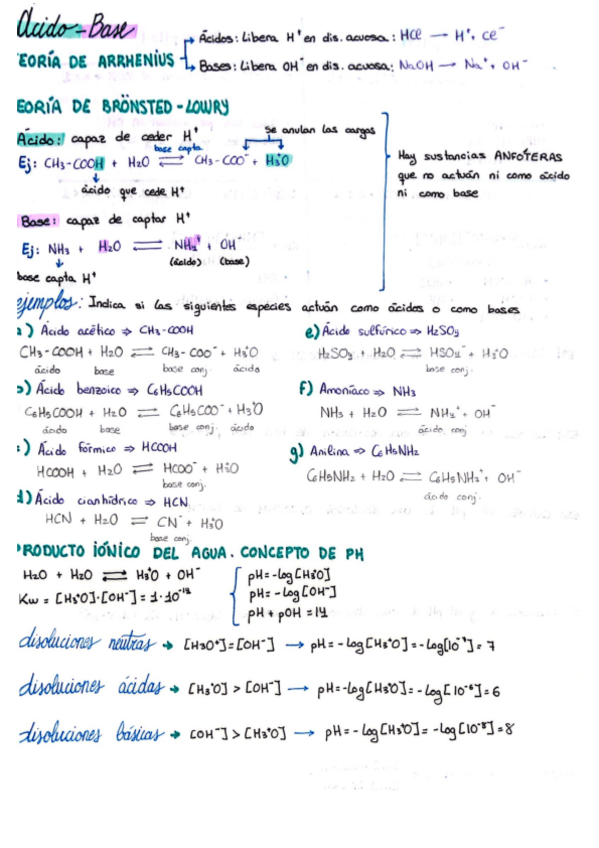 Ácido-Base
TEORÍA DE ARRHENIUS
Ácidos: Libera H⁺ en dis. acuosa: HCl → H⁺, Cl⁻
Bases: Libera OH⁻ en dis. acuosa: NaOH → Na⁺, OH⁻
EORÍA DE BRÖNSTED-LOWRY
Ácido: capaz de ceder H⁺
base capta
se anulan las cargas
Ej: CH₃-COOH + H₂O ⇌ CH₃-COO⁻ + H₃⁺O
ácido que cede H⁺
Base: capaz de captar H⁺
Ej: NH₃ + H₂O ⇌ NH₄⁺ + OH⁻
(ácido) (base)
base capta H⁺
Hay sustancias ANFÓTERAS
que no actúan ni como ácido
ni como base
ejemplos: Indica si las siguientes especies actúan como ácidos o como bases
a) Ácido acético ⇒ CH₃-COOH
CH₃-COOH + H₂O ⇌ CH₃-COO⁻ + H₃⁺O
ácido base base conj. ácido
b) Ácido benzoico ⇒ C₆H₅COOH
C₆H₅COOH + H₂O ⇌ C₆H₅COO⁻ + H₃⁺O
ácido base base conj. ácido
c) Ácido fórmico ⇒ HCOOH
HCOOH + H₂O ⇌ HCOO⁻ + H₃⁺O
base conj.
d) Ácido cianhídrico ⇒ HCN
HCN + H₂O ⇌ CN⁻ + H₃⁺O
base conj.
e) Ácido sulfúrico ⇒ H₂SO₄
H₂SO₄ + H₂O ⇌ HSO₄⁻ + H₃⁺O
base conj.
f) Amoníaco ⇒ NH₃
NH₃ + H₂O ⇌ NH₄⁺ + OH⁻
ácido conj
g) Anilina ⇒ C₆H₅NH₂
C₆H₅NH₂ + H₂O ⇌ C₆H₅NH₃⁺, OH⁻
ácido conj.
PRODUCTO IÓNICO DEL AGUA. CONCEPTO DE PH
H₂O + H₂O ⇌ H₃⁺O + OH⁻
Kw = [H₃⁺O]·[OH⁻] = 1·10⁻¹⁴
pH=-log[H₃⁺O]
pH=-log[OH⁻]
pH + pOH = 14
disoluciones neutras → [H₃O⁺]=[OH⁻] → pH=-log[H₃⁺O]=-log[10⁻⁷]=7
disoluciones ácidas → [H₃⁺O] > [OH⁻] → pH=-log[H₃⁺O]=-log[10⁻⁶]=6
disoluciones básicas → [OH⁻] > [H₃⁺O] → pH=-log[H₃⁺O]=-log[10⁻⁸]=8